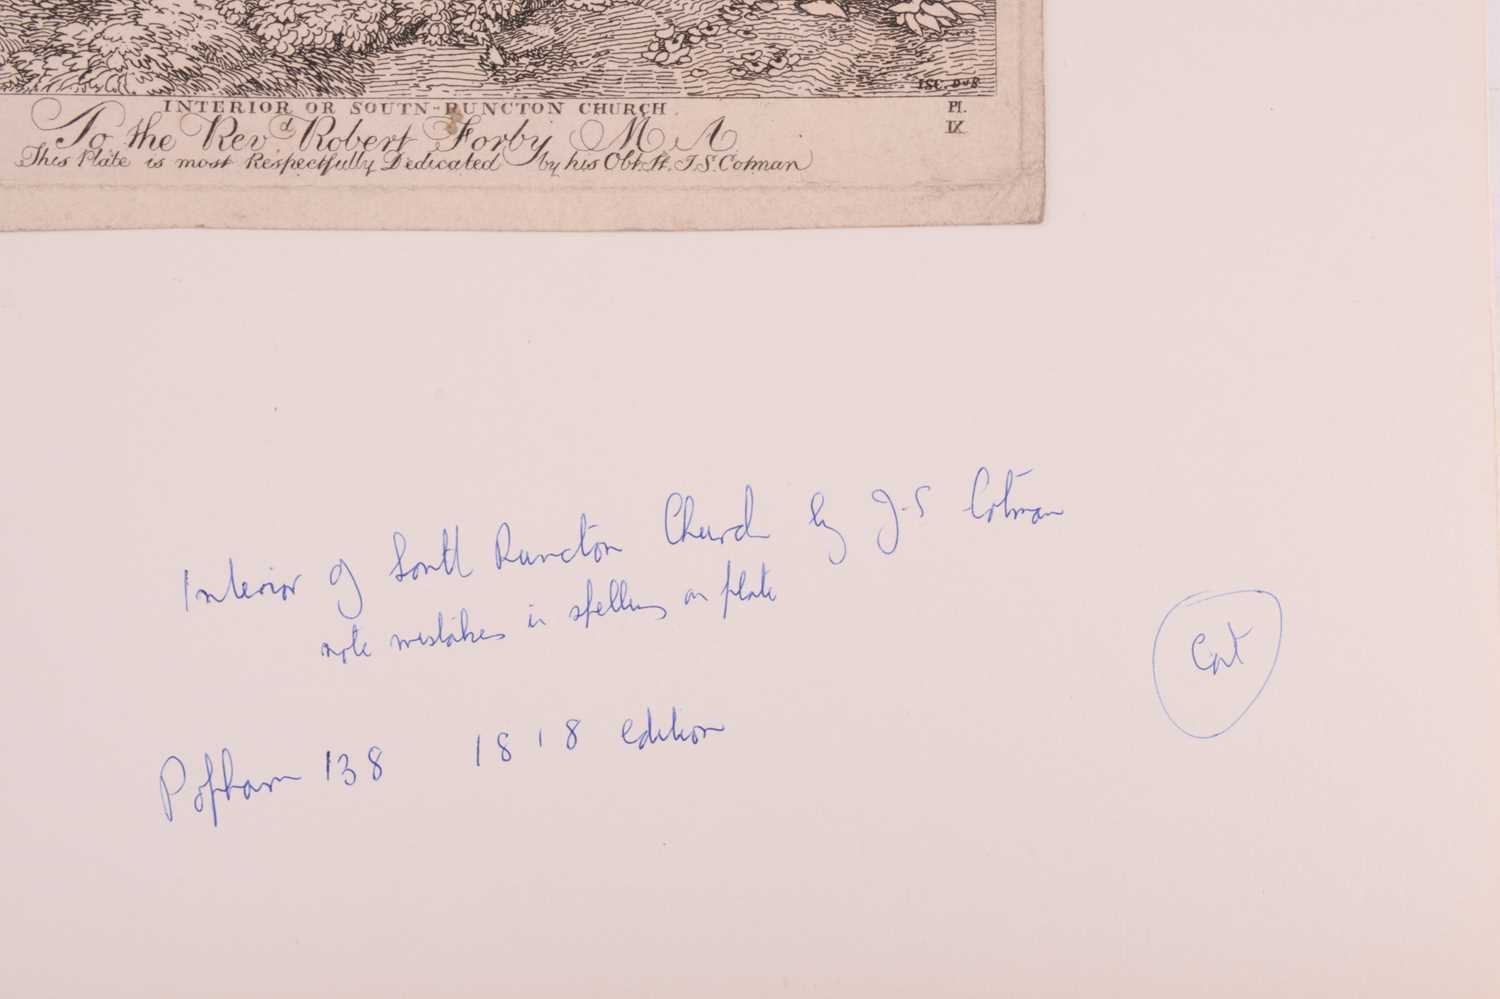 JSC. D & S
INTERIOR OR SOUTN-RUNCTON CHURCH
Pl.
IX
To the Revd Robert Forby M A
This Plate is most Respectfully Dedicated by his Obt. St. J.S. Cotman
Interior of South Runcton Church by J-S Cotman
note mistakes in spelling on plate
Cot
Popham 138 1818 edition